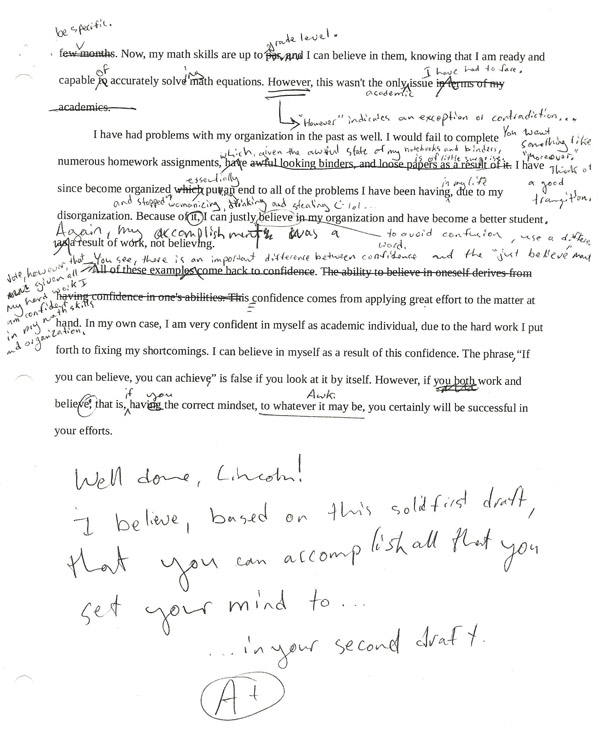 be specific.
grade level.
few months. Now, my math skills are up to par, and I can believe in them, knowing that I am ready and
of
ing
I have had to face.
capable to accurately solve math equations. However, this wasn't the only issue in terms of my
academic
academics.
"However" indicates an exception or contradiction...
I have had problems with my organization in the past as well. I would fail to complete
You want something like "Moreover." Think of a good transition.
which, given the awful state of my notebooks and binders, is of little surprise.
numerous homework assignments, have awful looking binders, and loose papers as a result of it. I have
essentially
in my life
since become organized which put an end to all of the problems I have been having, due to my
and stopped womanizing, thinking and stealing
disorganization. Because of it, I can justly believe in my organization and have become a better student,
Again, my accomplishment was a
to avoid confusion, use a different word.
as a result of work, not believing.
You see, there is an important difference between confidence and the "just believe"
Note, however, that given all my hard work I am confident in my math skills and organization.
All of these examples come back to confidence. The ability to believe in oneself derives from
having confidence in one's abilities. This confidence comes from applying great effort to the matter at
hand. In my own case, I am very confident in myself as academic individual, due to the hard work I put
forth to fixing my shortcomings. I can believe in myself as a result of this confidence. The phrase, "If
you can believe, you can achieve" is false if you look at it by itself. However, if you both work and
if you
Awk.
believe, that is, having the correct mindset, to whatever it may be, you certainly will be successful in
your efforts.
Well done, Lincoln!
I believe, based on this solid first draft,
that you can accomplish all that you
set your mind to...
...in your second draft.
A+